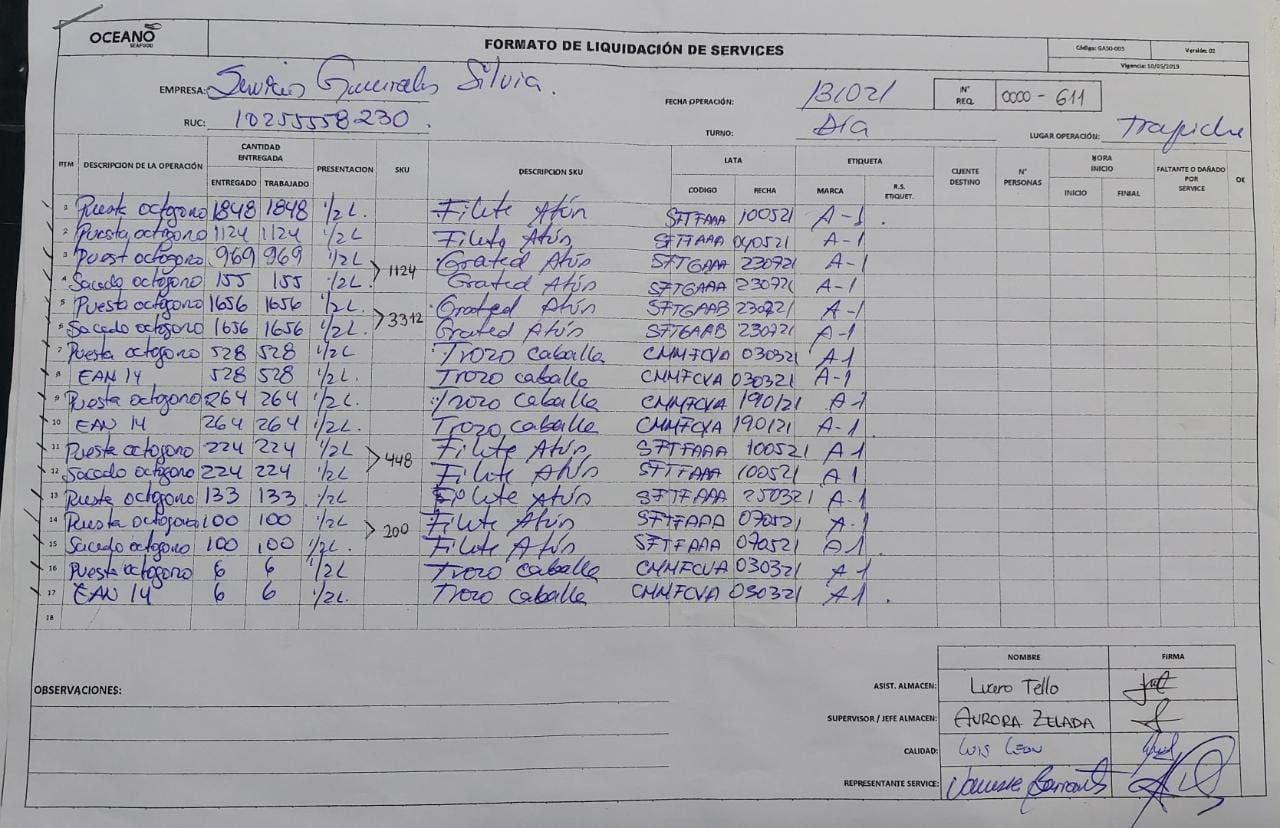 OCEANO
SEAFOOD
FORMATO DE LIQUIDACIÓN DE SERVICES
Código: GA50-005 Versión: 02
Vigencia: 10/05/2019
EMPRESA: Servicios Generales Silvia.
FECHA OPERACIÓN: 131021
N° REQ. 0000 - 611
RUC: 10255558230.
TURNO: Día
LUGAR OPERACIÓN: Trapiche
ITEM DESCRIPCION DE LA OPERACIÓN CANTIDAD ENTREGADA PRESENTACION SKU DESCRIPCION SKU LATA ETIQUETA CLIENTE DESTINO N° PERSONAS HORA INICIO FALTANTE O DAÑADO POR SERVICE OK
ENTREGADO TRABAJADO CODIGO FECHA MARCA R.S. ETIQUET. INICIO FINIAL
1 Puesta octogono 1848 1848 1/2 L. Filete Atún SFTFAAA 100521 A-1 .
2 Puesta octogono 1124 1124 1/2 L Filete Atún SFTFAAA 040521 A-1
3 Puest octogono 969 969 1/2 L. Grated Atún SFTGAAA 230721 A-1
> 1124
4 Sacado octogono 155 155 1/2 L. Grated Atún SFTGAAA 230721 A-1
5 Puesto octogono 1656 1656 1/2 L. Grated Atún SFTGAAB 230721 A-1
> 3312
6 Sacado octogono 1656 1656 1/2 L. Grated Atún SFTGAAB 230721 A-1
7 Puesta octogono 528 528 1/2 L. Trozo caballa CMMFCVA 030321 A1
8 EAN 14 528 528 1/2 L. Trozo caballa CMMFCVA 030321 A-1
9 Puesta octogono 264 264 1/2 L. Trozo caballa CMMFCVA 190121 A-1
10 EAN 14 264 264 1/2 L. Trozo caballa CMMFCVA 190121 A-1
11 Puesta octogono 224 224 1/2 L Filete Atún SFTFAAA 100521 A1
> 448
12 Sacado octogono 224 224 1/2 L Filete Atún SFTFAAA 100521 A1
13 Puesta octogono 133 133 1/2 L Filete Atún SFTFAAA 250321 A-1
14 Puesta octogono 100 100 1/2 L Filete Atún SFTFAAA 070521 A-1
> 200
15 Sacado octogono 100 100 1/2 L. Filete Atún SFTFAAA 070521 A1
16 Puesta octogono 6 6 1/2 L Trozo caballa CMMFCVA 030321 A1
17 EAN 14 6 6 1/2 L. Trozo caballa CMMFCVA 030321 A1 .
18
NOMBRE FIRMA
OBSERVACIONES:
ASIST. ALMACEN: Lucero Tello
SUPERVISOR / JEFE ALMACEN: AURORA ZELADA
CALIDAD: LUIS LEON
REPRESENTANTE SERVICE: